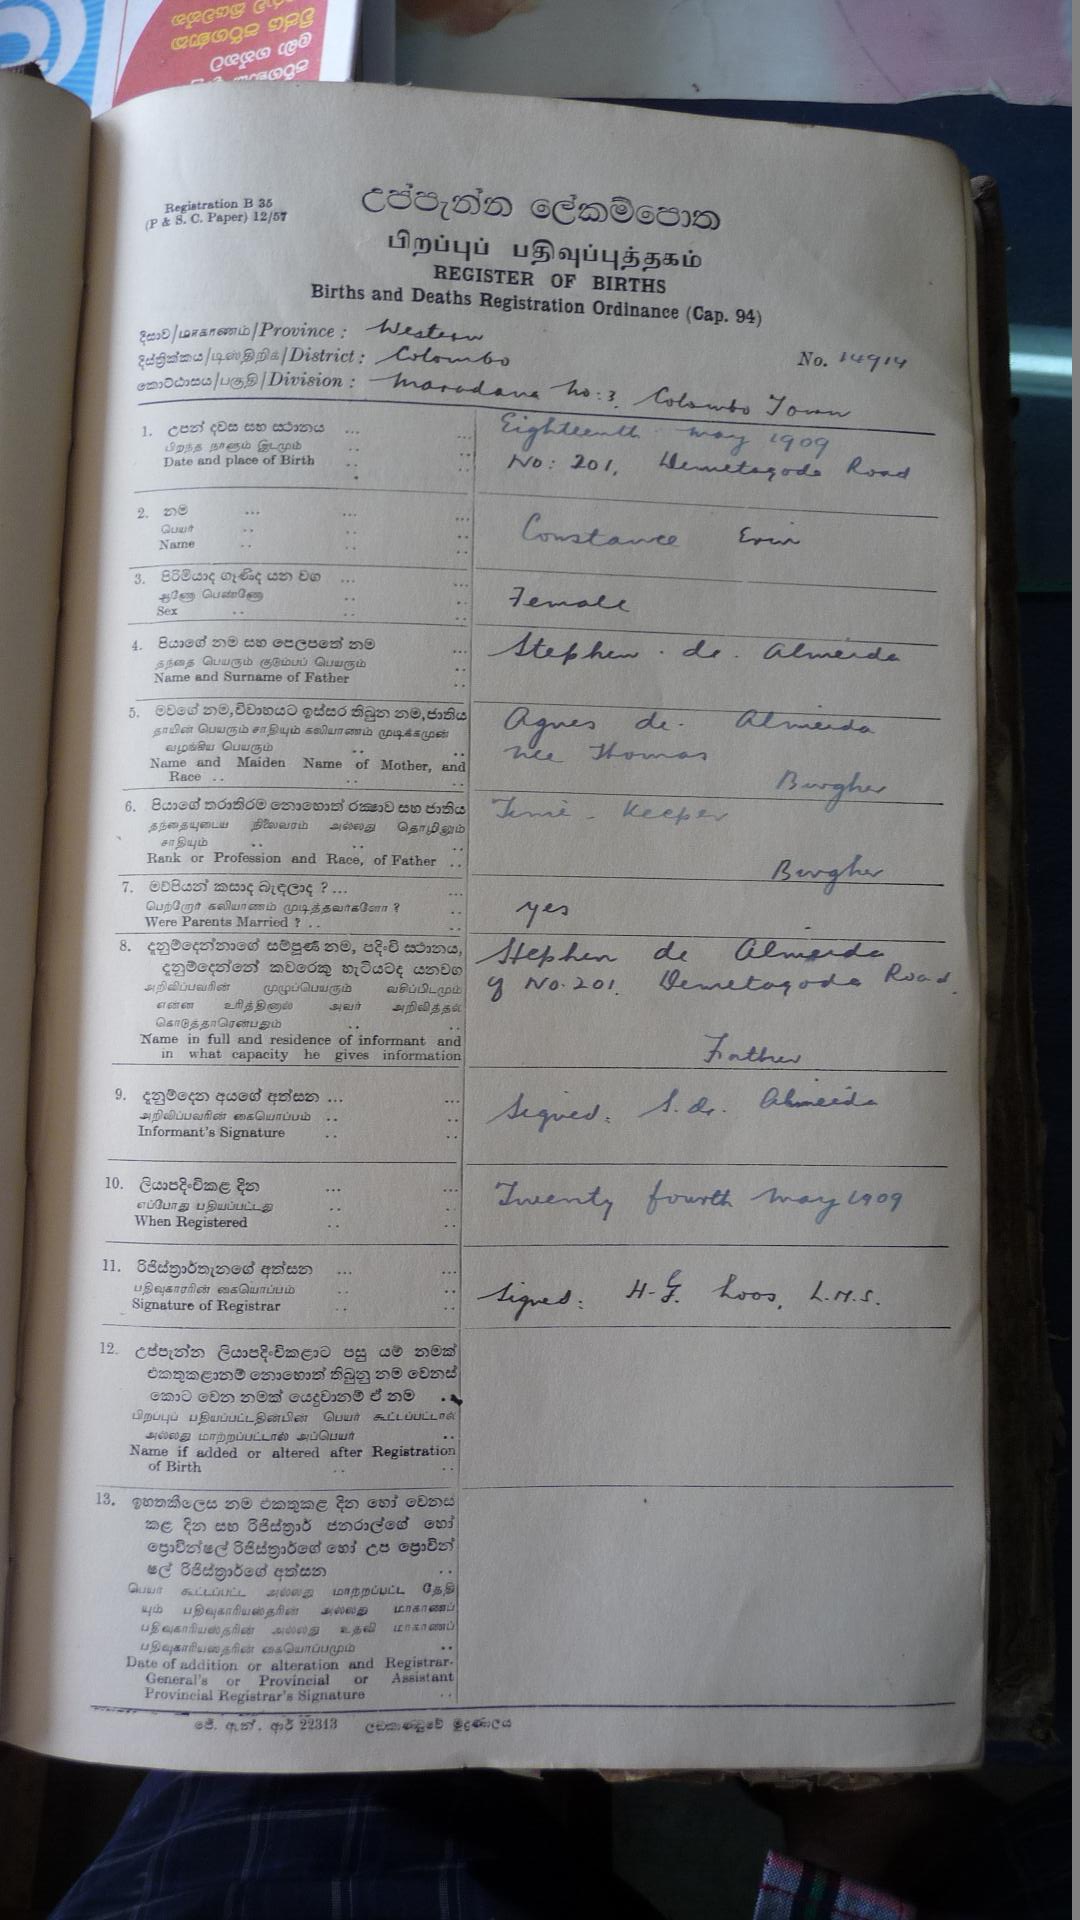 Registration B 35
(P & S. C. Paper) 12/57
උප්පැන්න ලේකම්පොත
பிறப்புப் பதிவுப்புத்தகம்
REGISTER OF BIRTHS
Births and Deaths Registration Ordinance (Cap. 94)
දිසාව/மாகாணம்/Province : Western
දිස්ත්‍රික්කය/டிஸ்திறிக்/District : Colombo
No. 14914
කොට්ඨාසය/பகுதி/Division : Maradana No: 3, Colombo Town
1. උපන් දවස සහ ස්ථානය ... ...
பிறந்த நாளும் இடமும் .. ..
Date and place of Birth .. ..
Eighteenth May 1909
No: 201, Demetagoda Road
2. නම ... ... ...
பெயர் .. .. ..
Name .. .. ..
Constance Erin
3. පිරිමියාද ගැණිද යන වග ... ...
ஆணோ பெண்ணோ .. ..
Sex .. .. ..
Female
4. පියාගේ නම සහ පෙලපතේ නම ...
தந்தை பெயரும் குடும்பப் பெயரும் ..
Name and Surname of Father ..
Stephen de Almeida
5. මවගේ නම, විවාහයට ඉස්සර තිබුන නම, ජාතිය
தாயின் பெயரும் சாதியும் கலியாணம் முடிக்கமுன்
வழங்கிய பெயரும் .. ..
Name and Maiden Name of Mother, and
Race .. .. ..
Agnes de Almeida
nee Thomas
Burgher
6. පියාගේ තරාතිරම නොහොත් රක්‍ෂාව සහ ජාතිය
தந்தையுடைய நிலைவரம் அல்லது தொழிலும்
சாதியும் .. .. ..
Rank or Profession and Race, of Father ..
Time - Keeper
Burgher
7. මව්පියන් කසාද බැඳලාද ? ... ...
பெற்றோர் கலியாணம் முடித்தவர்களோ ? ..
Were Parents Married ? .. ..
yes
8. දැනුම්දෙන්නාගේ සම්පූර්‍ණ නම, පදිංචි ස්ථානය,
දැනුම්දෙන්නේ කවරෙකු හැටියටද යනවග
அறிவிப்பவரின் முழுப்பெயரும் வசிப்பிடமும்
என்ன உரித்தினால் அவர் அறிவித்தல்
கொடுத்தாரென்பதும் .. ..
Name in full and residence of informant and
in what capacity he gives information
Stephen de Almeida
of No. 201, Demetagoda Road.
Father
9. දැනුම්දෙන අයගේ අත්සන ... ...
அறிவிப்பவரின் கையொப்பம் .. ..
Informant's Signature .. ..
Signed: S. de. Almeida
10. ලියාපදිංචිකළ දින ... ...
எப்போது பதியப்பட்டது .. ..
When Registered .. ..
Twenty fourth May 1909
11. රිජිස්ත්‍රාර්තැනගේ අත්සන ... ...
பதிவுகாரரின் கையொப்பம் .. ..
Signature of Registrar .. ..
Signed: H. G. Loos, L.M.S.
12. උප්පැන්න ලියාපදිංචිකළාට පසු යම් නමක්
එකතුකළානම් නොහොත් තිබුනු නම වෙනස්
කොට වෙන නමක් යෙදුවානම් ඒ නම ..
பிறப்புப் பதியப்பட்டதின்பின் பெயர் கூட்டப்பட்டால்
அல்லது மாற்றப்பட்டால் அப்பெயர் ..
Name if added or altered after Registration
of Birth .. ..
13. ඉහතකීලෙස නම එකතුකළ දින හෝ වෙනස්
කළ දින සහ රිජිස්ත්‍රාර් ජනරාල්ගේ හෝ
ප්‍රොවින්ෂල් රිජිස්ත්‍රාර්ගේ හෝ උප ප්‍රොවින්
ෂල් රිජිස්ත්‍රාර්ගේ අත්සන ..
பெயர் கூட்டப்பட்ட அல்லது மாற்றப்பட்ட தேதி
யும் பதிவுகாரியஸ்தரின் அல்லது மாகாணப்
பதிவுகாரியஸ்தரின் அல்லது உதவி மாகாணப்
பதிவுகாரியஸ்தரின் கையொப்பமும் ..
Date of addition or alteration and Registrar-
General's or Provincial or Assistant
Provincial Registrar's Signature ..
ජේ. ඇන්. ආර් 22313 ලංකාණ්ඩුවේ මුද්‍රණාලය